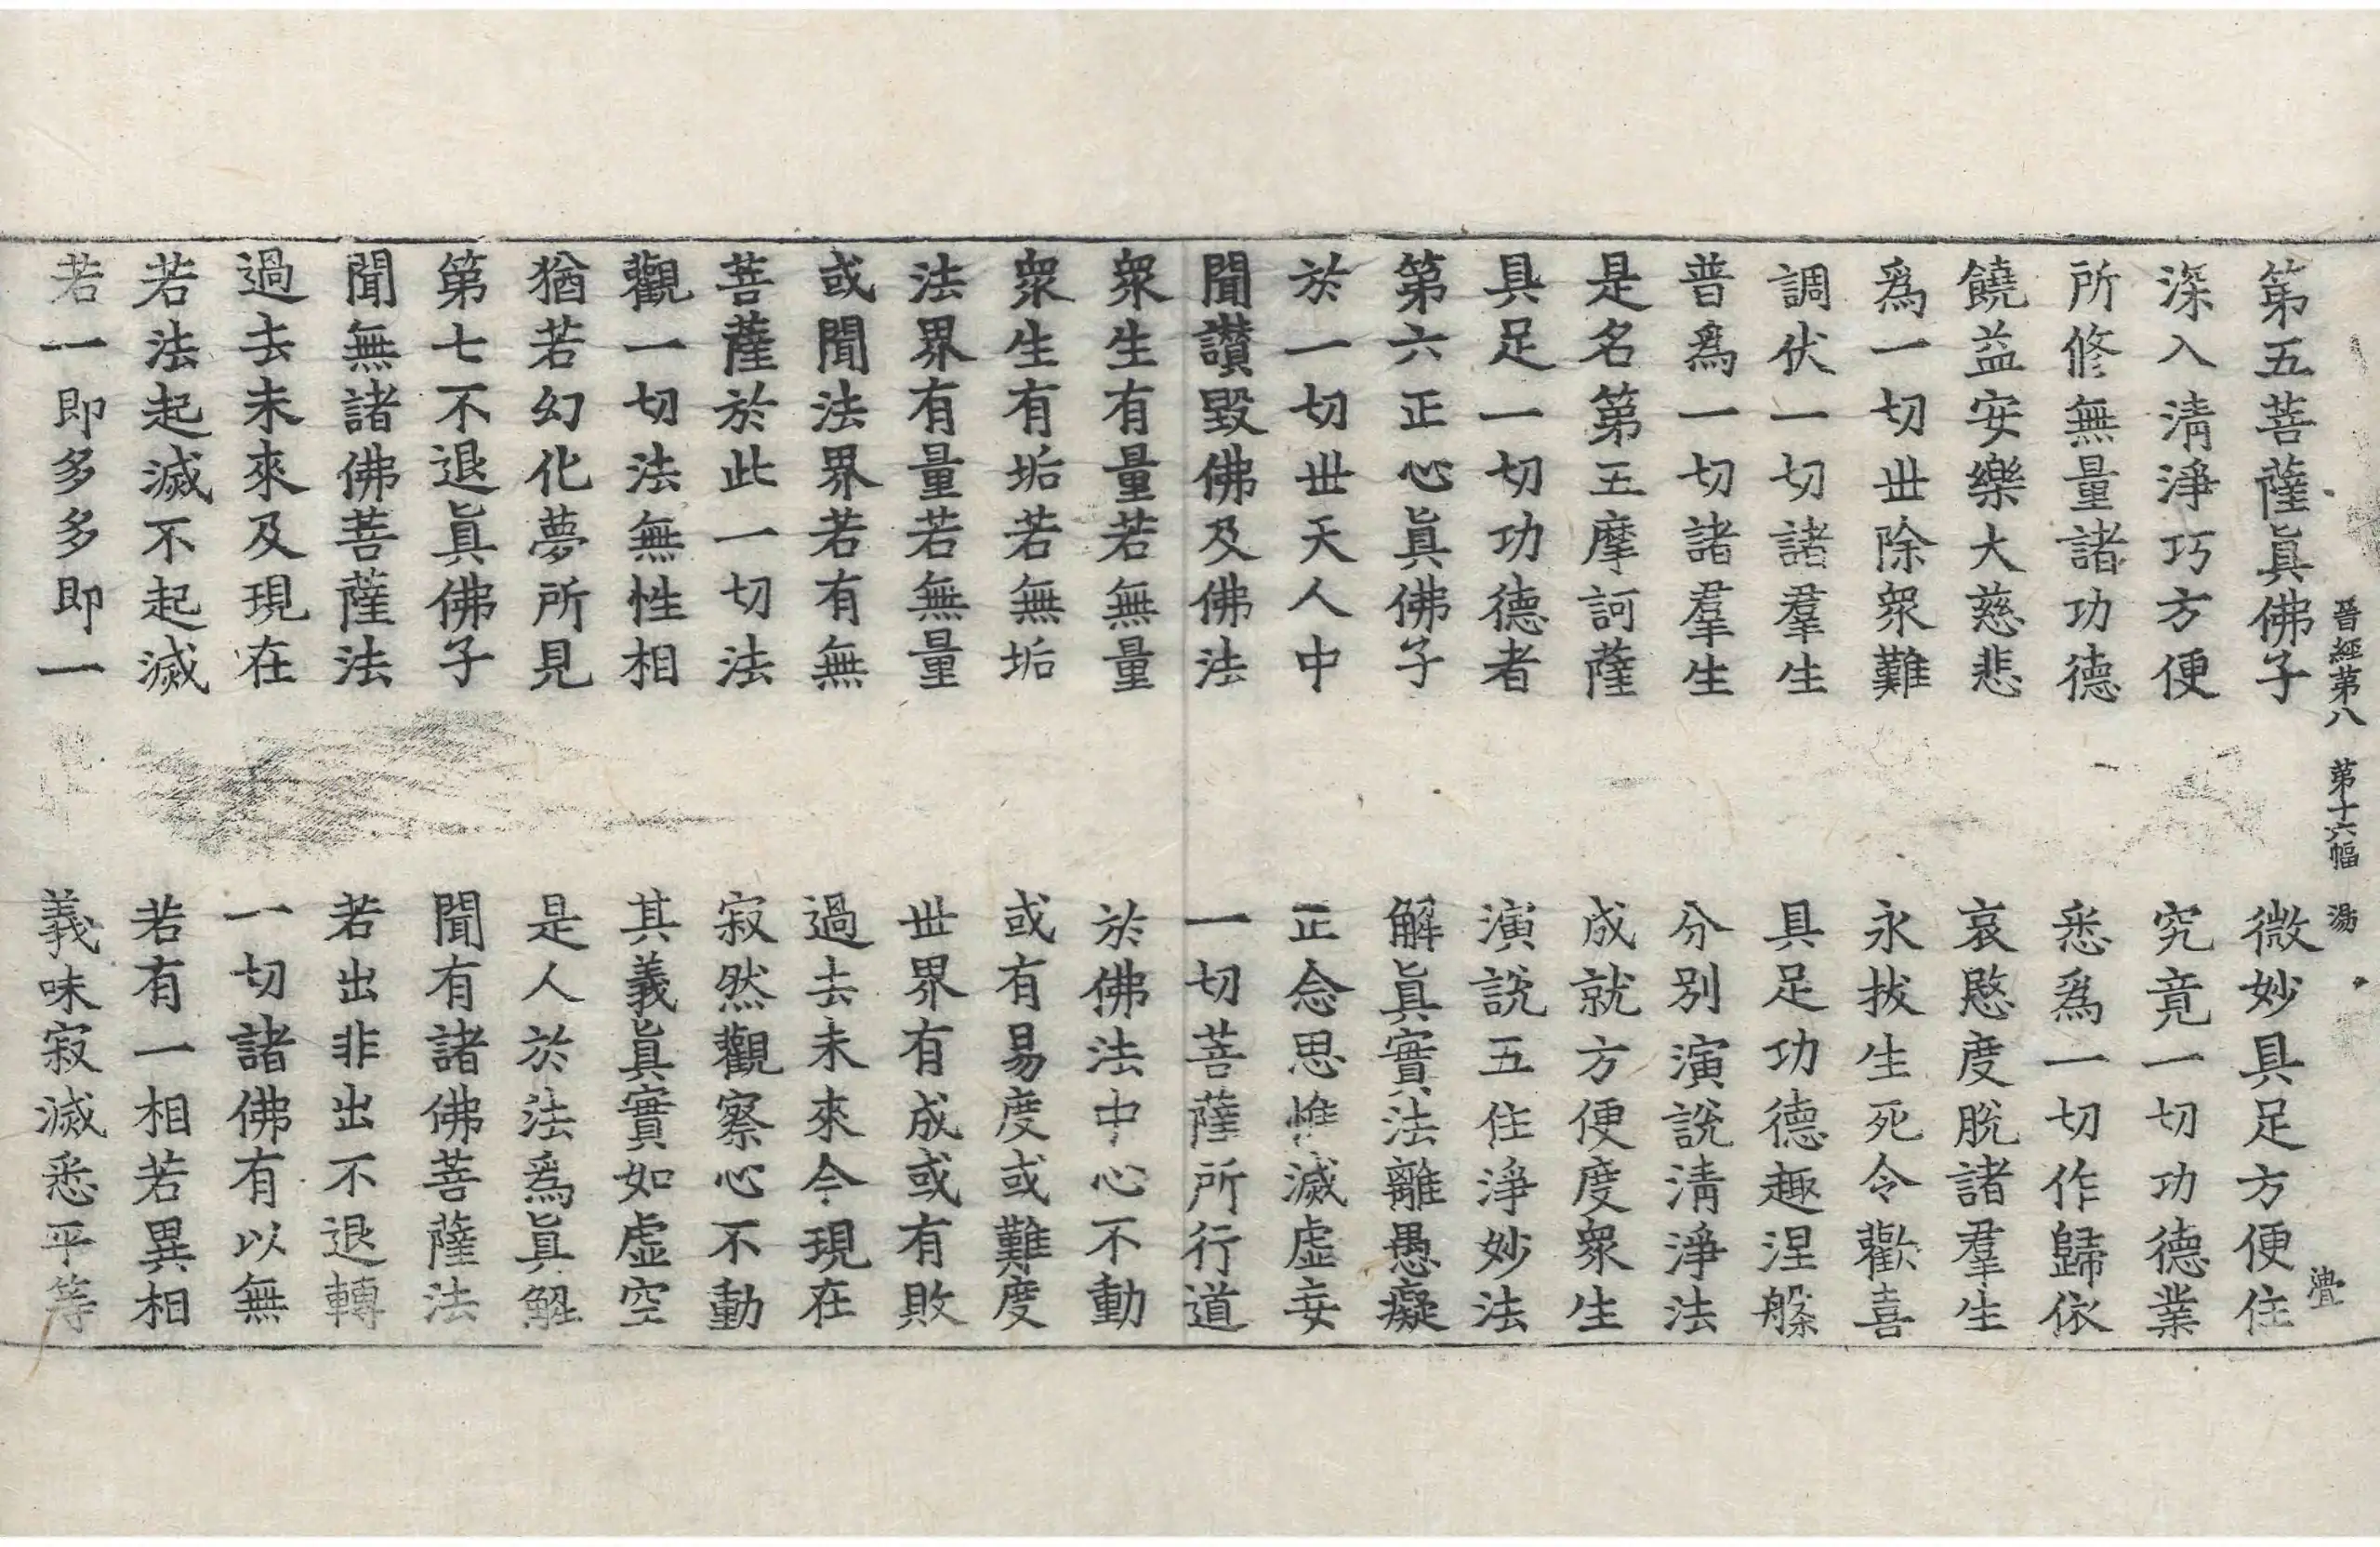 晉經第八 第十六幅 湯 𤴁
第五菩薩眞佛子 微妙具足方便住
深入淸淨巧方便 究竟一切功德業
所修無量諸功德 悉爲一切作歸依
饒益安樂大慈悲 哀愍度脫諸羣生
爲一切世除衆難 永拔生死令歡喜
調伏一切諸羣生 具足功德趣涅槃
普爲一切諸羣生 分別演說淸淨法
是名第五摩訶薩 成就方便度衆生
具足一切功德者 演說五住淨妙法
第六正心眞佛子 解眞實法離愚癡
於一切世天人中 正念思惟滅虛妄
聞讃毀佛及佛法 一切菩薩所行道
衆生有量若無量 於佛法中心不動
衆生有垢若無垢 或有易度或難度
法界有量若無量 世界有成或有敗
或聞法界若有無 過去未來今現在
菩薩於此一切法 寂然觀察心不動
觀一切法無性相 其義眞實如虛空
猶若幻化夢所見 是人於法爲眞解
第七不退眞佛子 聞有諸佛菩薩法
聞無諸佛菩薩法 若出非出不退轉
過去未來及現在 一切諸佛有以無
若法起滅不起滅 若有一相若異相
若一即多多即一 義味寂滅悉平等